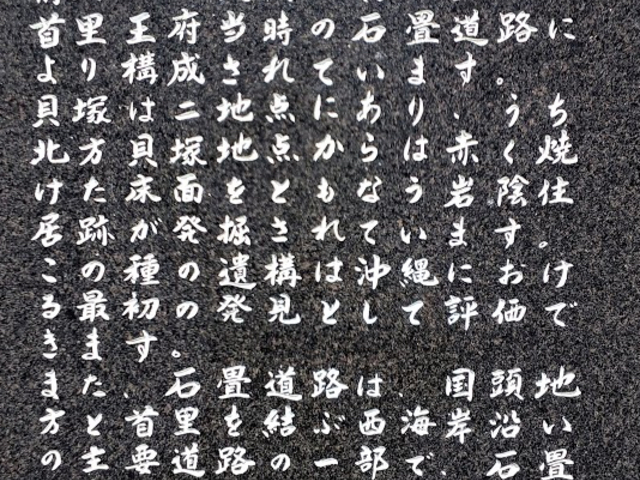 首里王府当時の石畳道路に
より構成されています。
貝塚は二地点にあり、うち
北方貝塚地点からは赤く焼
けた床面をともなう岩陰住
居跡が発掘されています。
この種の遺構は沖縄におけ
る最初の発見として評価で
きます。
また、石畳道路は、国頭地
方と首里を結ぶ西海岸沿い
の主要道路の一部で、石畳